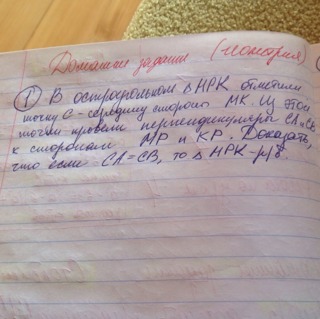 Домашнее задание (геометрия)
① В остроугольном Δ МРК отметили
точку С - середину стороны МК. Из этой
точки провели перпендикуляры СА и СВ
к сторонам МР и КР. Доказать,
что если СА = СВ, то Δ МРК - р/б.